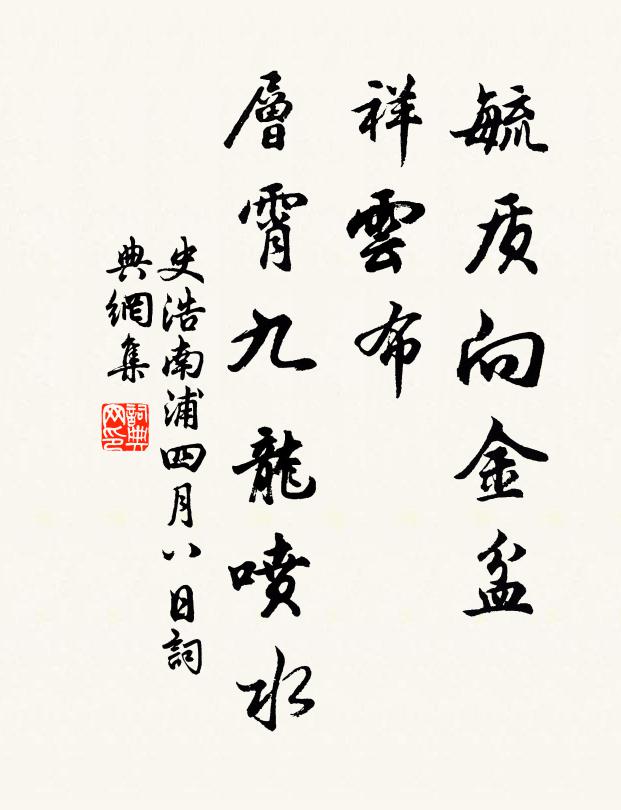 毓质向金盆
祥雲布
層霄九龍噴水
史浩南浦四月八日詞
典網集
詞典网印